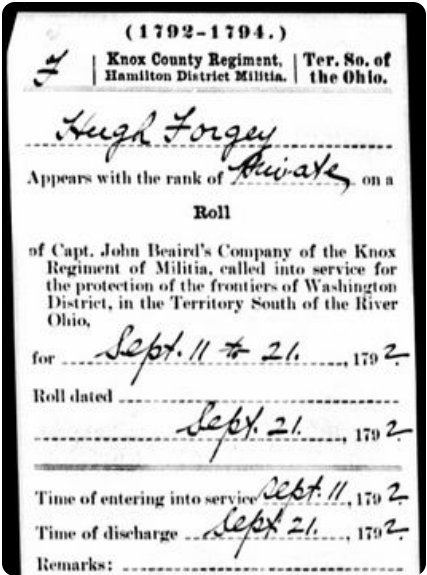 (1792–1794.)
F | Knox County Regiment, Hamilton District Militia. | Ter. So. of the Ohio.
Hugh Forgey
Appears with the rank of Private on a
Roll
of Capt. John Beaird's Company of the Knox
Regiment of Militia, called into service for
the protection of the frontiers of Washington
District, in the Territory South of the River
Ohio,
for Sept. 11 to 21., 1792
Roll dated
Sept. 21., 1792
Time of entering into service Sept. 11, 1792
Time of discharge Sept. 21., 1792
Remarks: